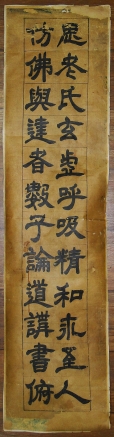 思老氏玄虛呼吸精和求至人
仿佛與達者數子論道講書俯